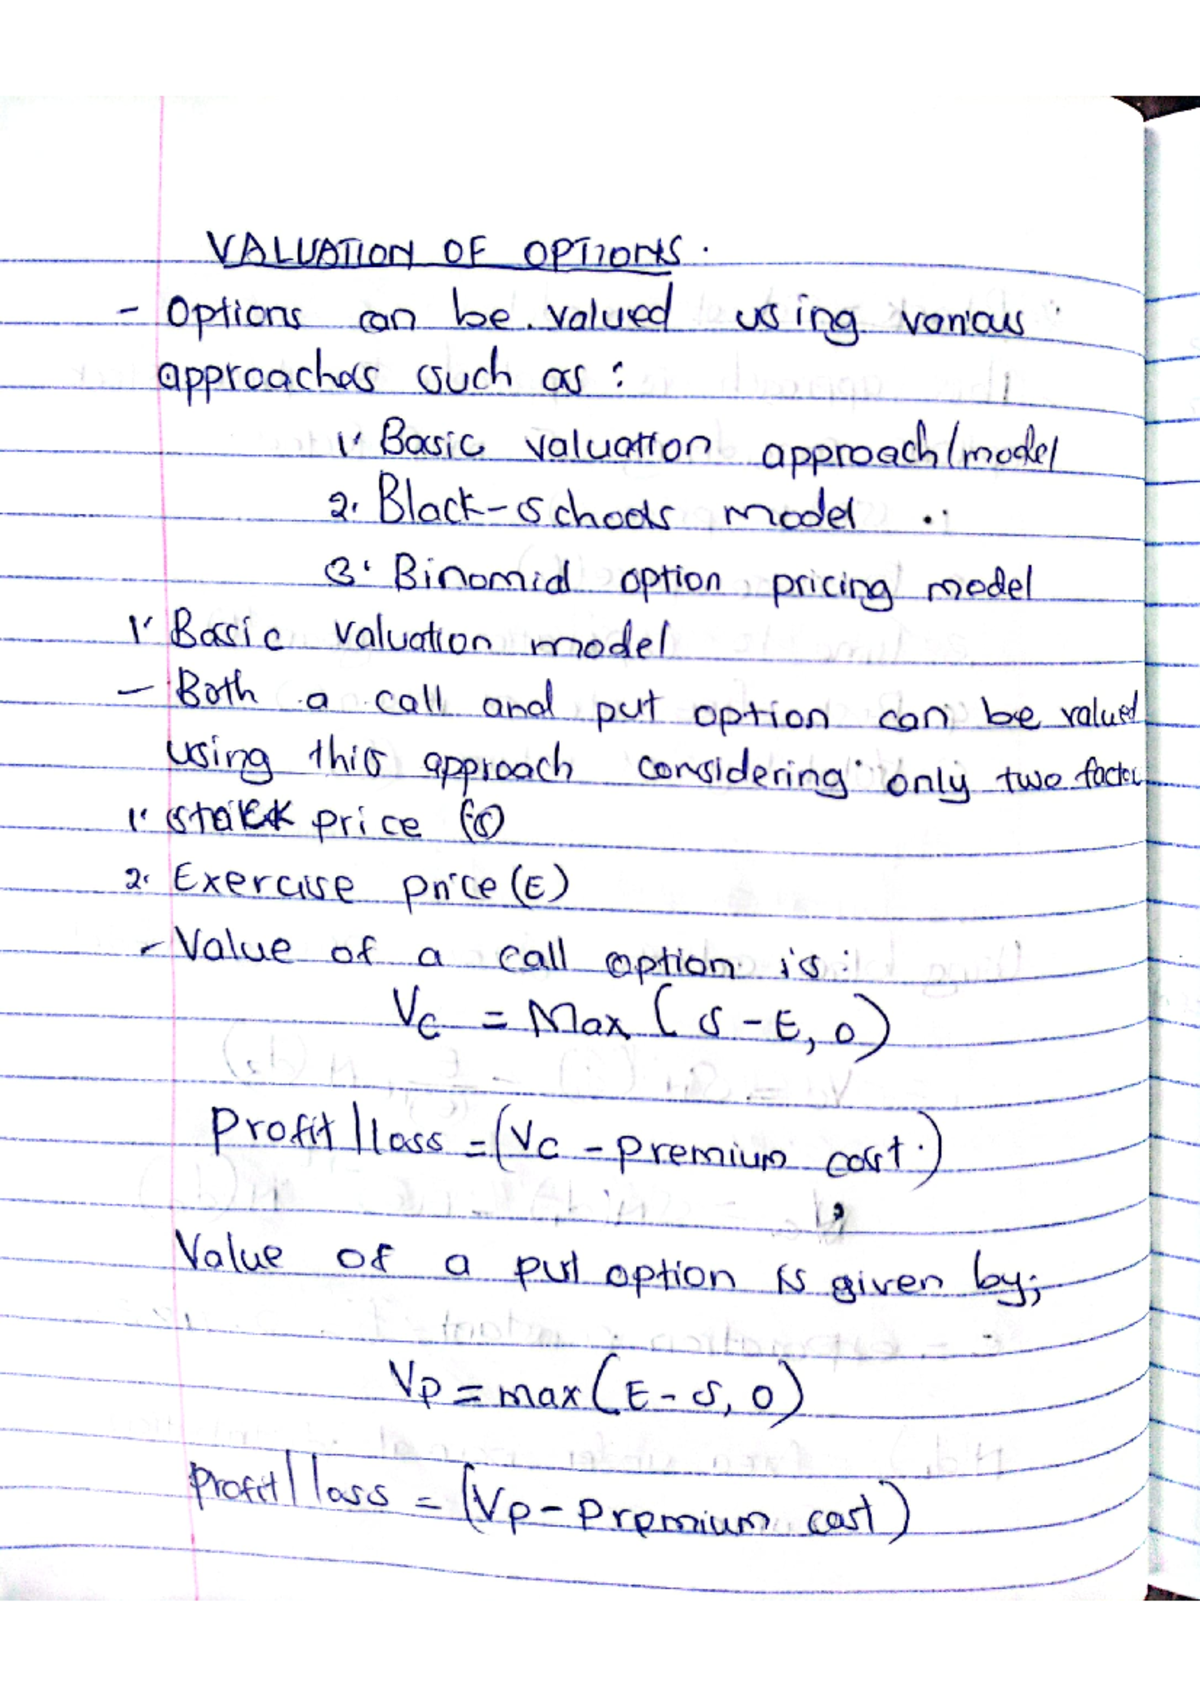 VALUATION OF OPTIONS.
- Options can be valued using various
approaches such as:
1. Basic valuation approach/model
2. Black-Schools model
3. Binomial option pricing model
1. Basic valuation model
- Both a call and put option can be valued
using this approach considering only two factor
1. Stock price (S)
2. Exercise price (E)
- Value of a call option is:
Vc = Max (S - E, 0)
Profit/loss = (Vc - Premium cost.)
Value of a put option is given by;
Vp = max (E - S, 0)
Profit/loss = (Vp - Premium cost)